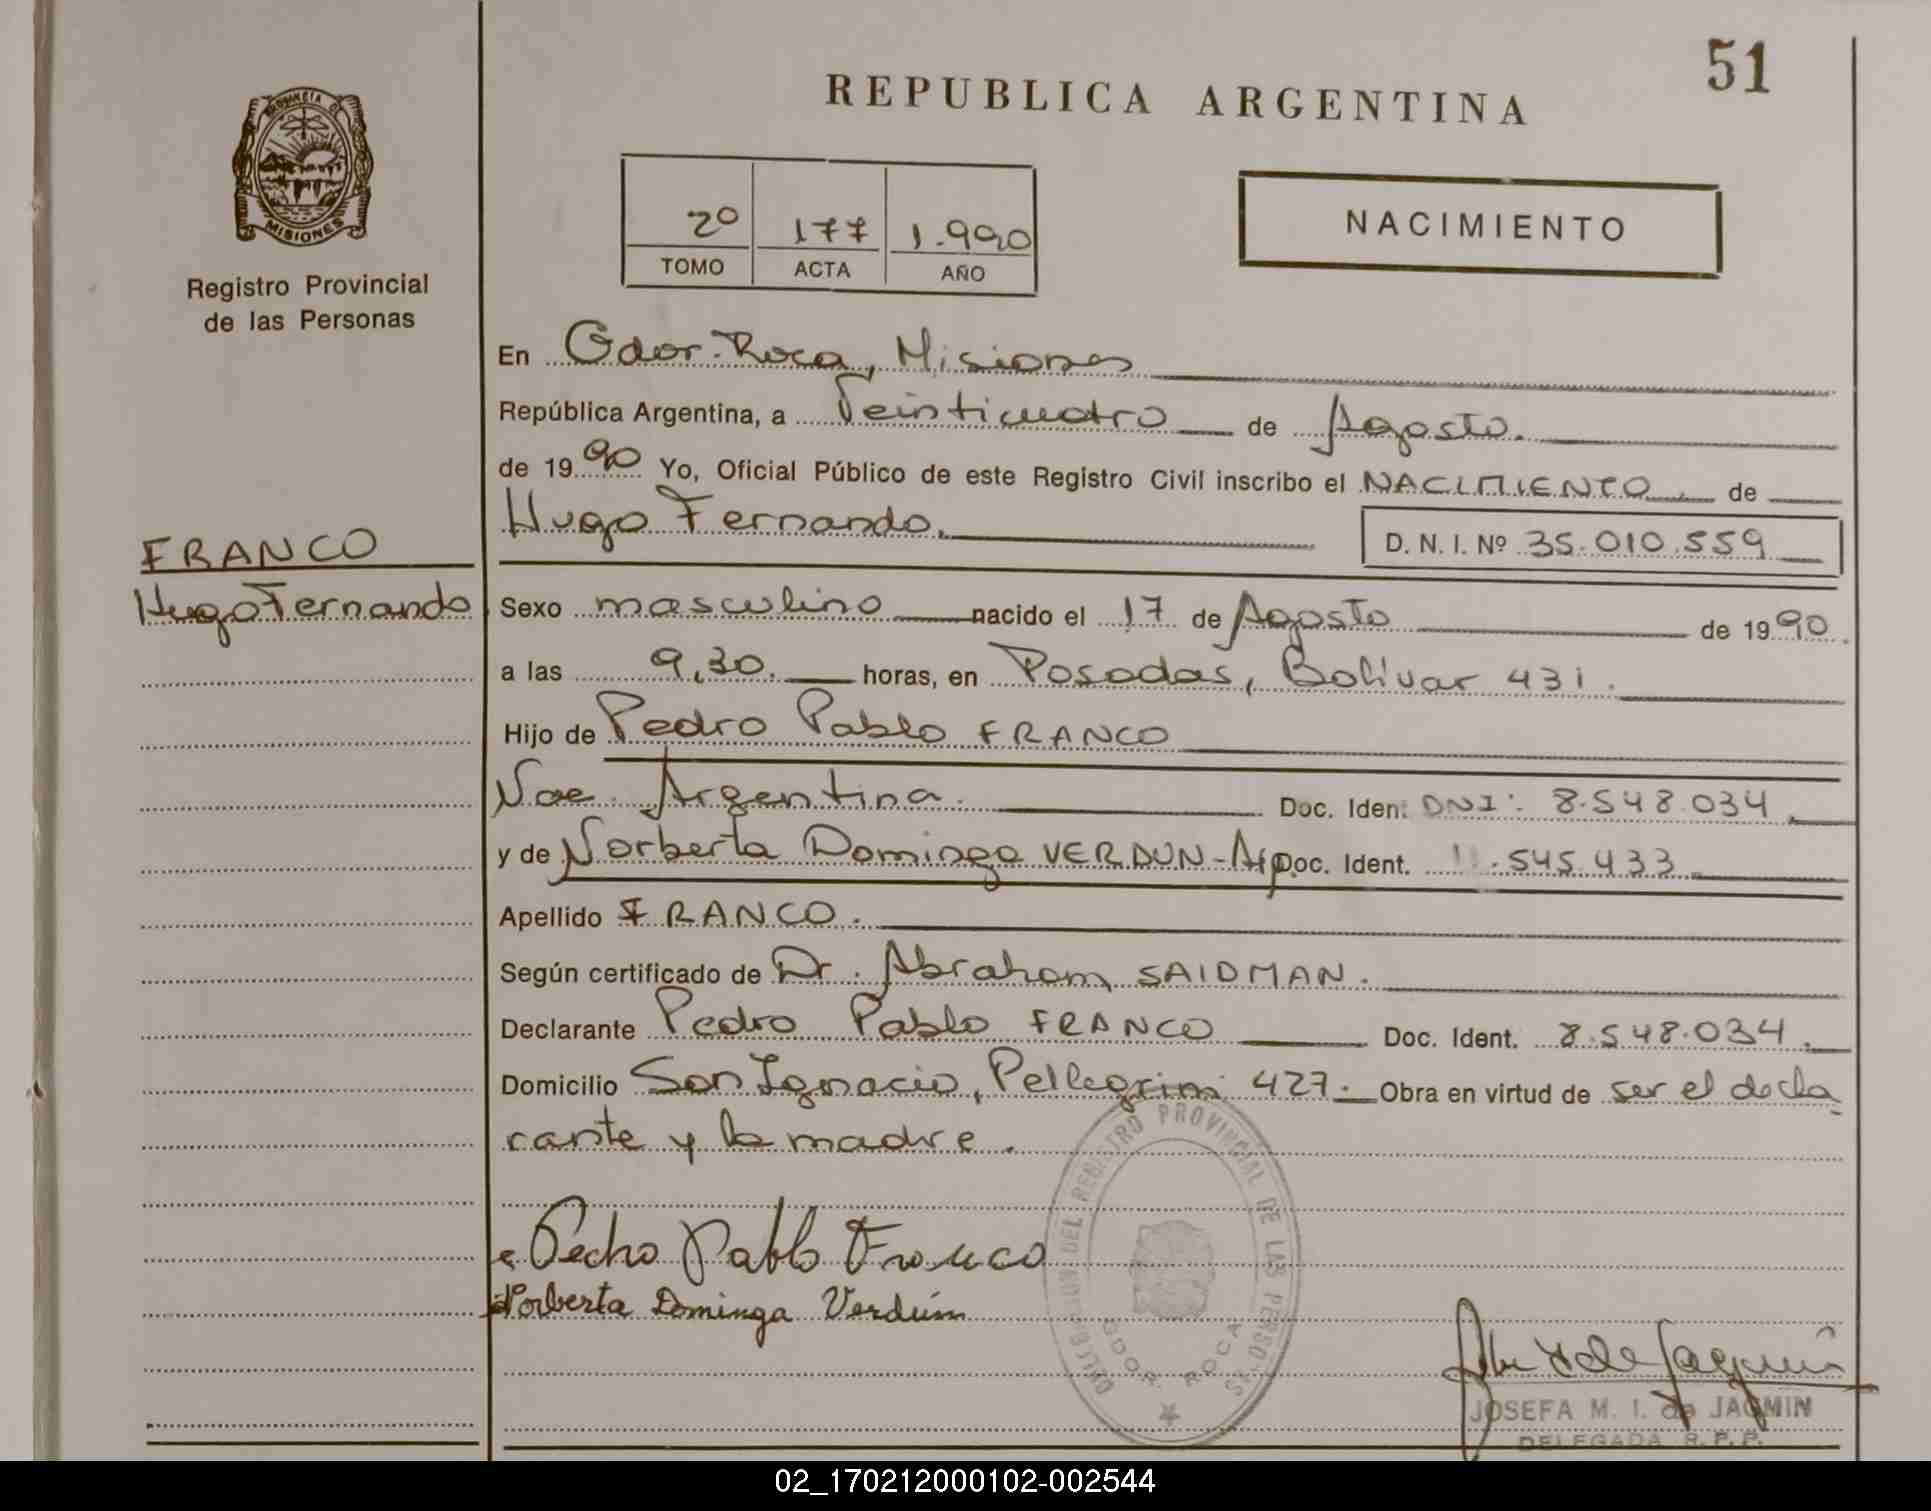 51
REPUBLICA ARGENTINA
PROVINCIA DE
MISIONES
Registro Provincial
de las Personas
2º 177 1.990
TOMO ACTA AÑO
NACIMIENTO
En Gdor. Roca, Misiones
República Argentina, a Veinticuatro de Agosto.
de 1990 Yo, Oficial Público de este Registro Civil inscribo el NACIMIENTO de
Hugo Fernando. D. N. I. Nº 35.010.559
FRANCO
Hugo Fernando
Sexo masculino nacido el 17 de Agosto de 1990.
a las 9,30. horas, en Posadas, Bolívar 431.
Hijo de Pedro Pablo FRANCO
Nac. Argentina. Doc. Iden: DNI: 8.548.034
y de Norberta Dominga VERDUN - Arg. Doc. Ident. 11.545.433
Apellido FRANCO.
Según certificado de Dr. Abraham SAIDMAN.
Declarante Pedro Pablo FRANCO Doc. Ident. 8.548.034.
Domicilio San Ignacio, Pellegrini 427. Obra en virtud de ser el decla
rante y la madre.
Pedro Pablo Franco
Norberta Dominga Verdún
DELEGACION DEL REGISTRO PROVINCIAL DE LAS PERSONAS
GDOR. ROCA
de Jaqmin
JOSEFA M. I. de JAQMIN
DELEGADA R.P.P.
02_170212000102-002544